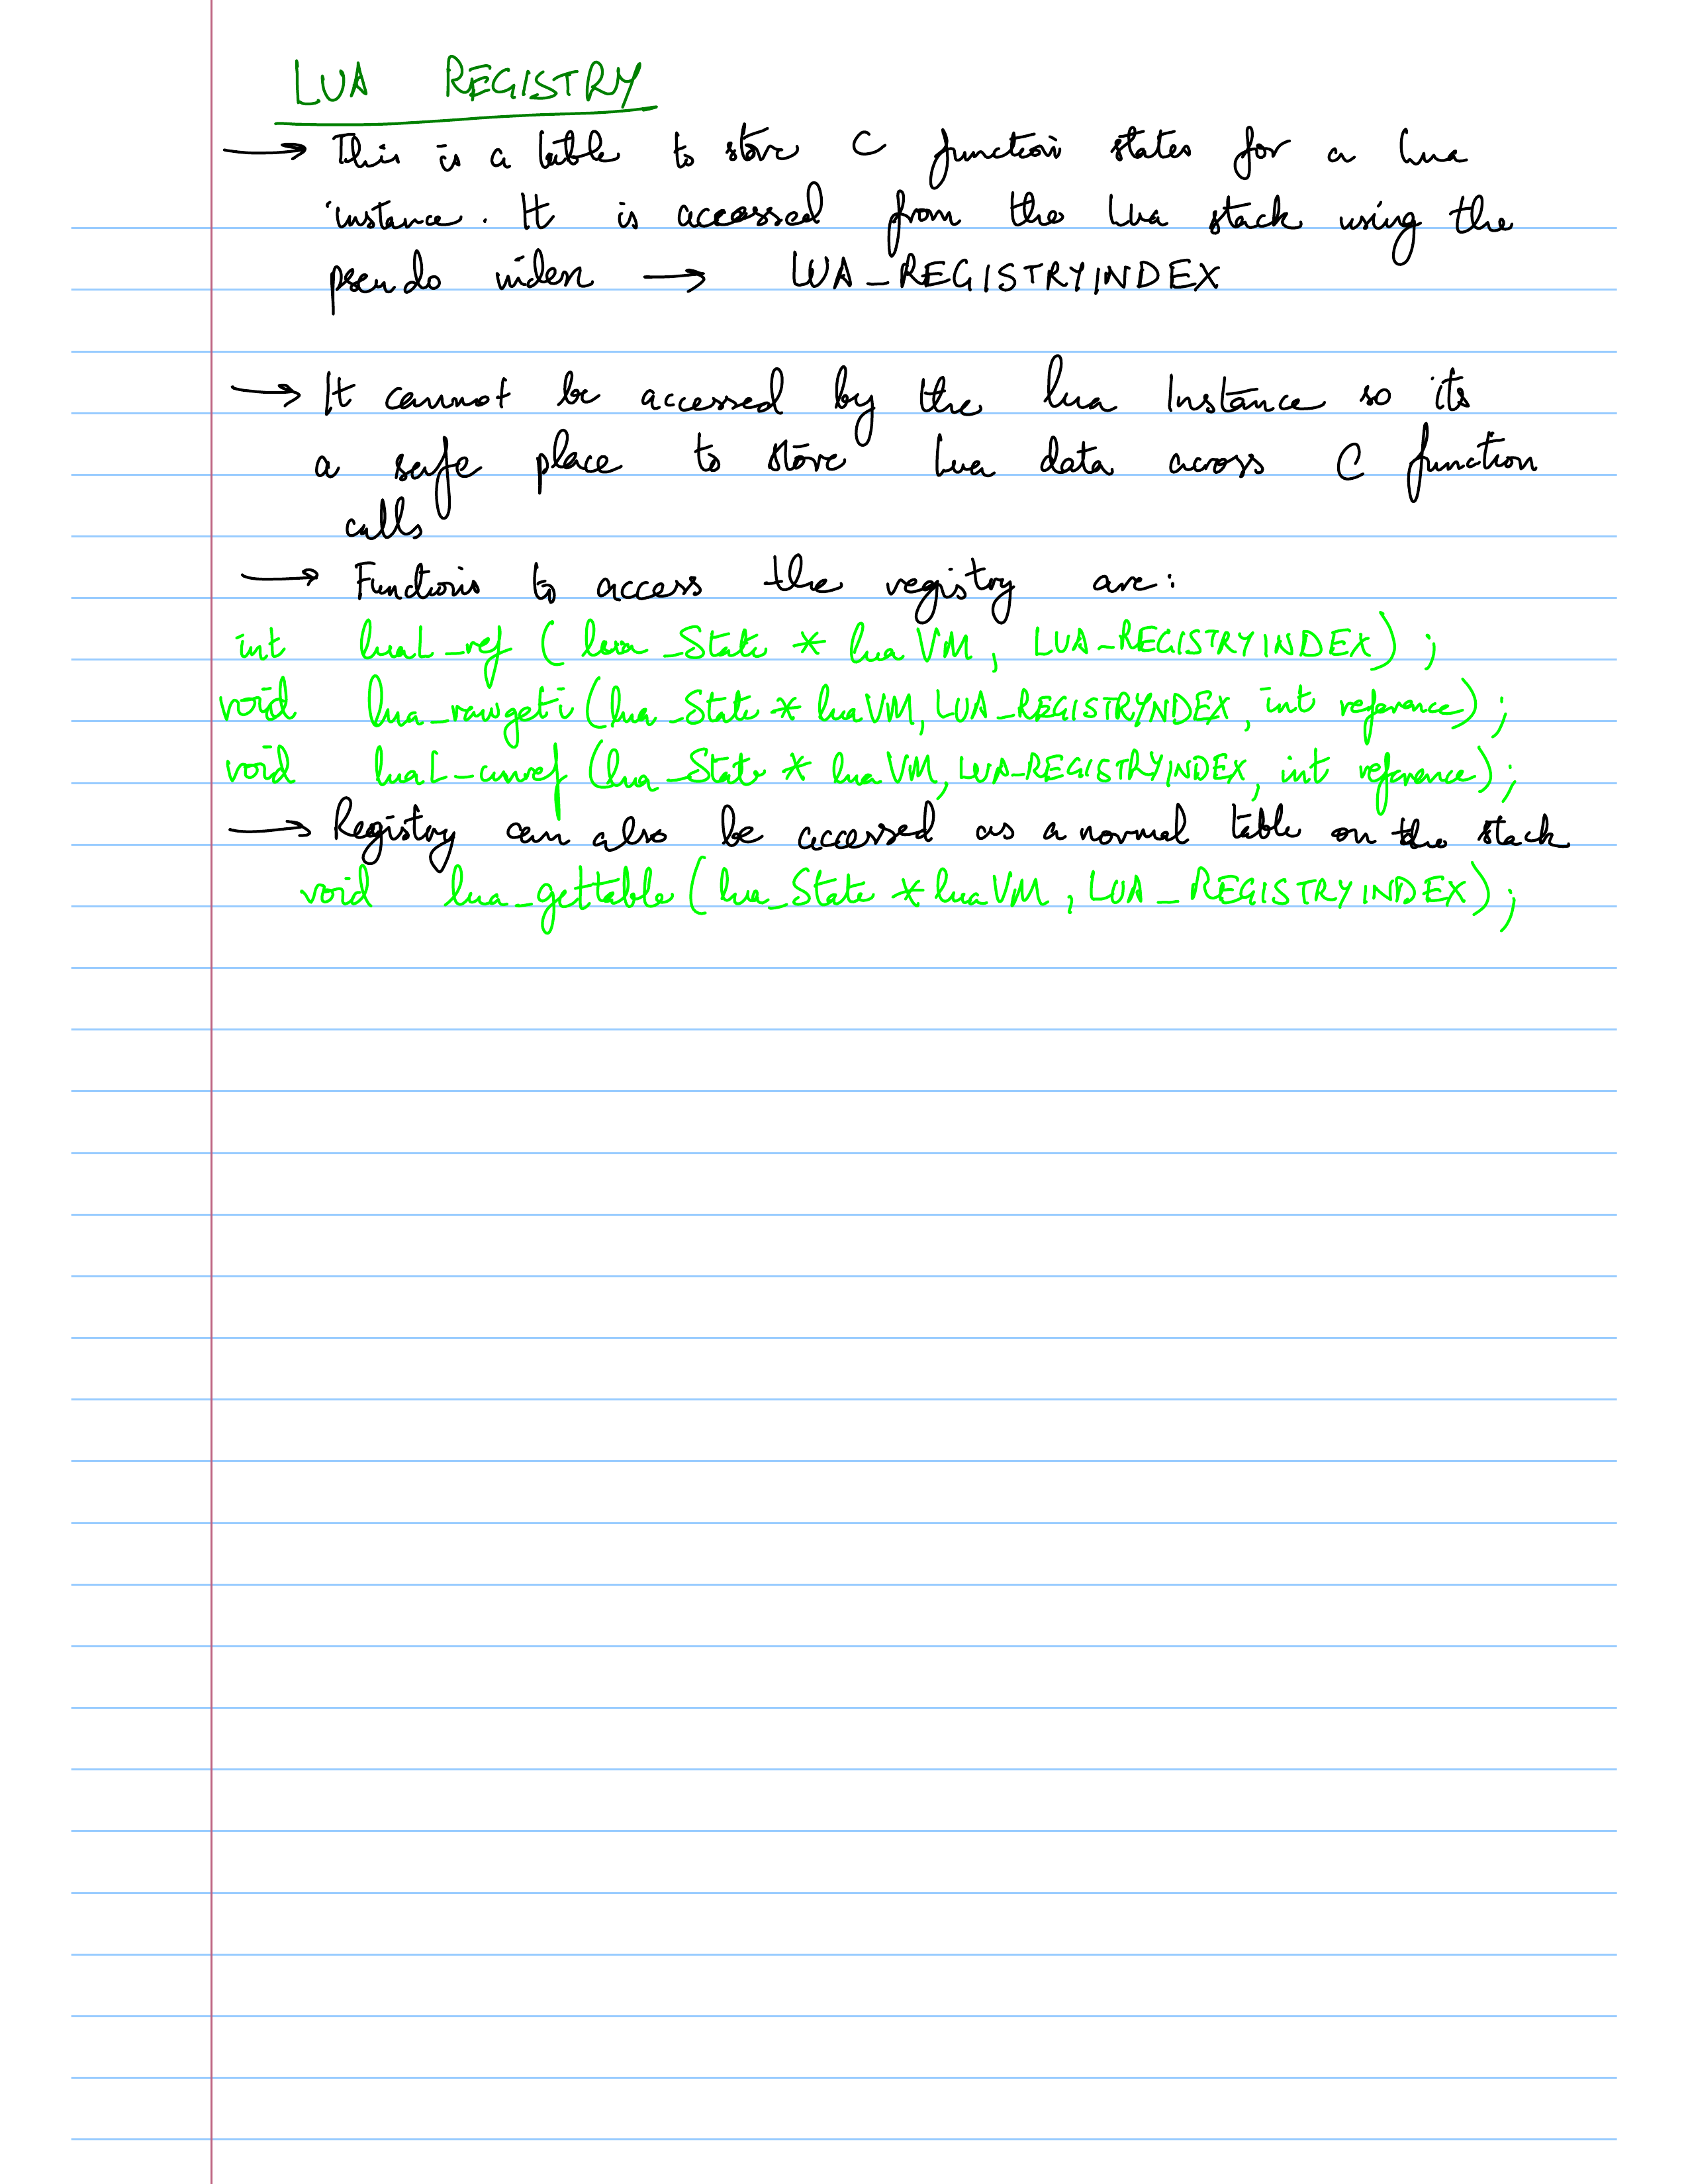 LUA REGISTRY
→ This is a table to store C function states for a Lua
instance. It is accessed from the Lua stack using the
pseudo index → LUA_REGISTRYINDEX
→ It cannot be accessed by the lua Instance so its
a safe place to store Lua data across C function
calls
→ Functions to access the registry are:
int luaL_ref ( lua_State * luaVM, LUA_REGISTRYINDEX);
void lua_rawgeti (lua_State * luaVM, LUA_REGISTRYINDEX, int reference);
void luaL_unref (lua_State * luaVM, LUA_REGISTRYINDEX, int reference);
→ Registry can also be accessed as a normal table on the stack
void lua_gettable (lua_State * luaVM, LUA_REGISTRYINDEX);